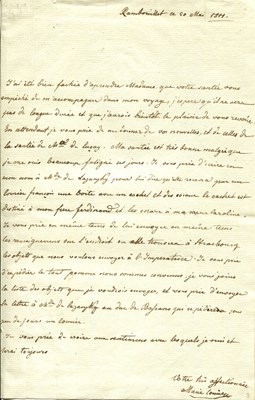 Rambouillet ce 20 Mai 1811.
J'ai été bien fachée d'aprendre Madame que votre santé vous
empêché de m'accompagner dans mon voyage, j'espere qu'il ne sera
pas de longue durée et que j'aurois bientôt le plaisir de vous revoir.
En attendant je vous prie de me donner de vos nouvelles, et de celles de
la santé de Mde de Luçay. Ma santé est très bonne malgré que
je me sois beaucoup fatiguée ces jours. Je vous prie d'écrire en
mon nom à Mde de Lazansky pour lui dire qu'elle recevra par un
courier françois une boite avec un cachet et des le cachet est
destiné à mon frere Ferdinand et les à ma sœur Caroline.
Je vous prie en même tems de lui envoyer en meme tems
les renseignemens sur l'endroit ou elle trouvera à Strasbourg
les objets que nous voulons envoyer à l'Imperatrice. Je vous prie
d'expédier le tout comme nous sommes convenus je vous joins
la liste des objets que je voudrois envoyer, et vous prie d'envoyer
la lettre à Mde de Lazansky au duc de Bassano qui expédiera
un de jours un courier.
Je vous prie de croire aux sentimens avec lesquels je suis et
serai toujours
Votre très affectionnée
Marie Louise